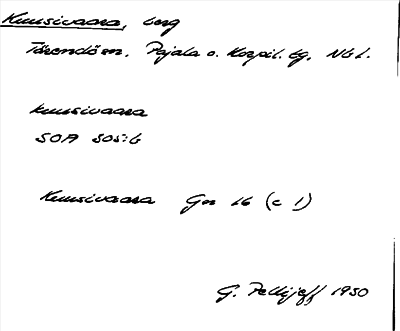 Kuusivaara, berg
Tärendö sn. Pajala o. Korpil. tg. Nbl.
Kuusivaara
SOA 805:6
Kuusivaara Gen 16 (c 1)
G. Pellijeff 1950